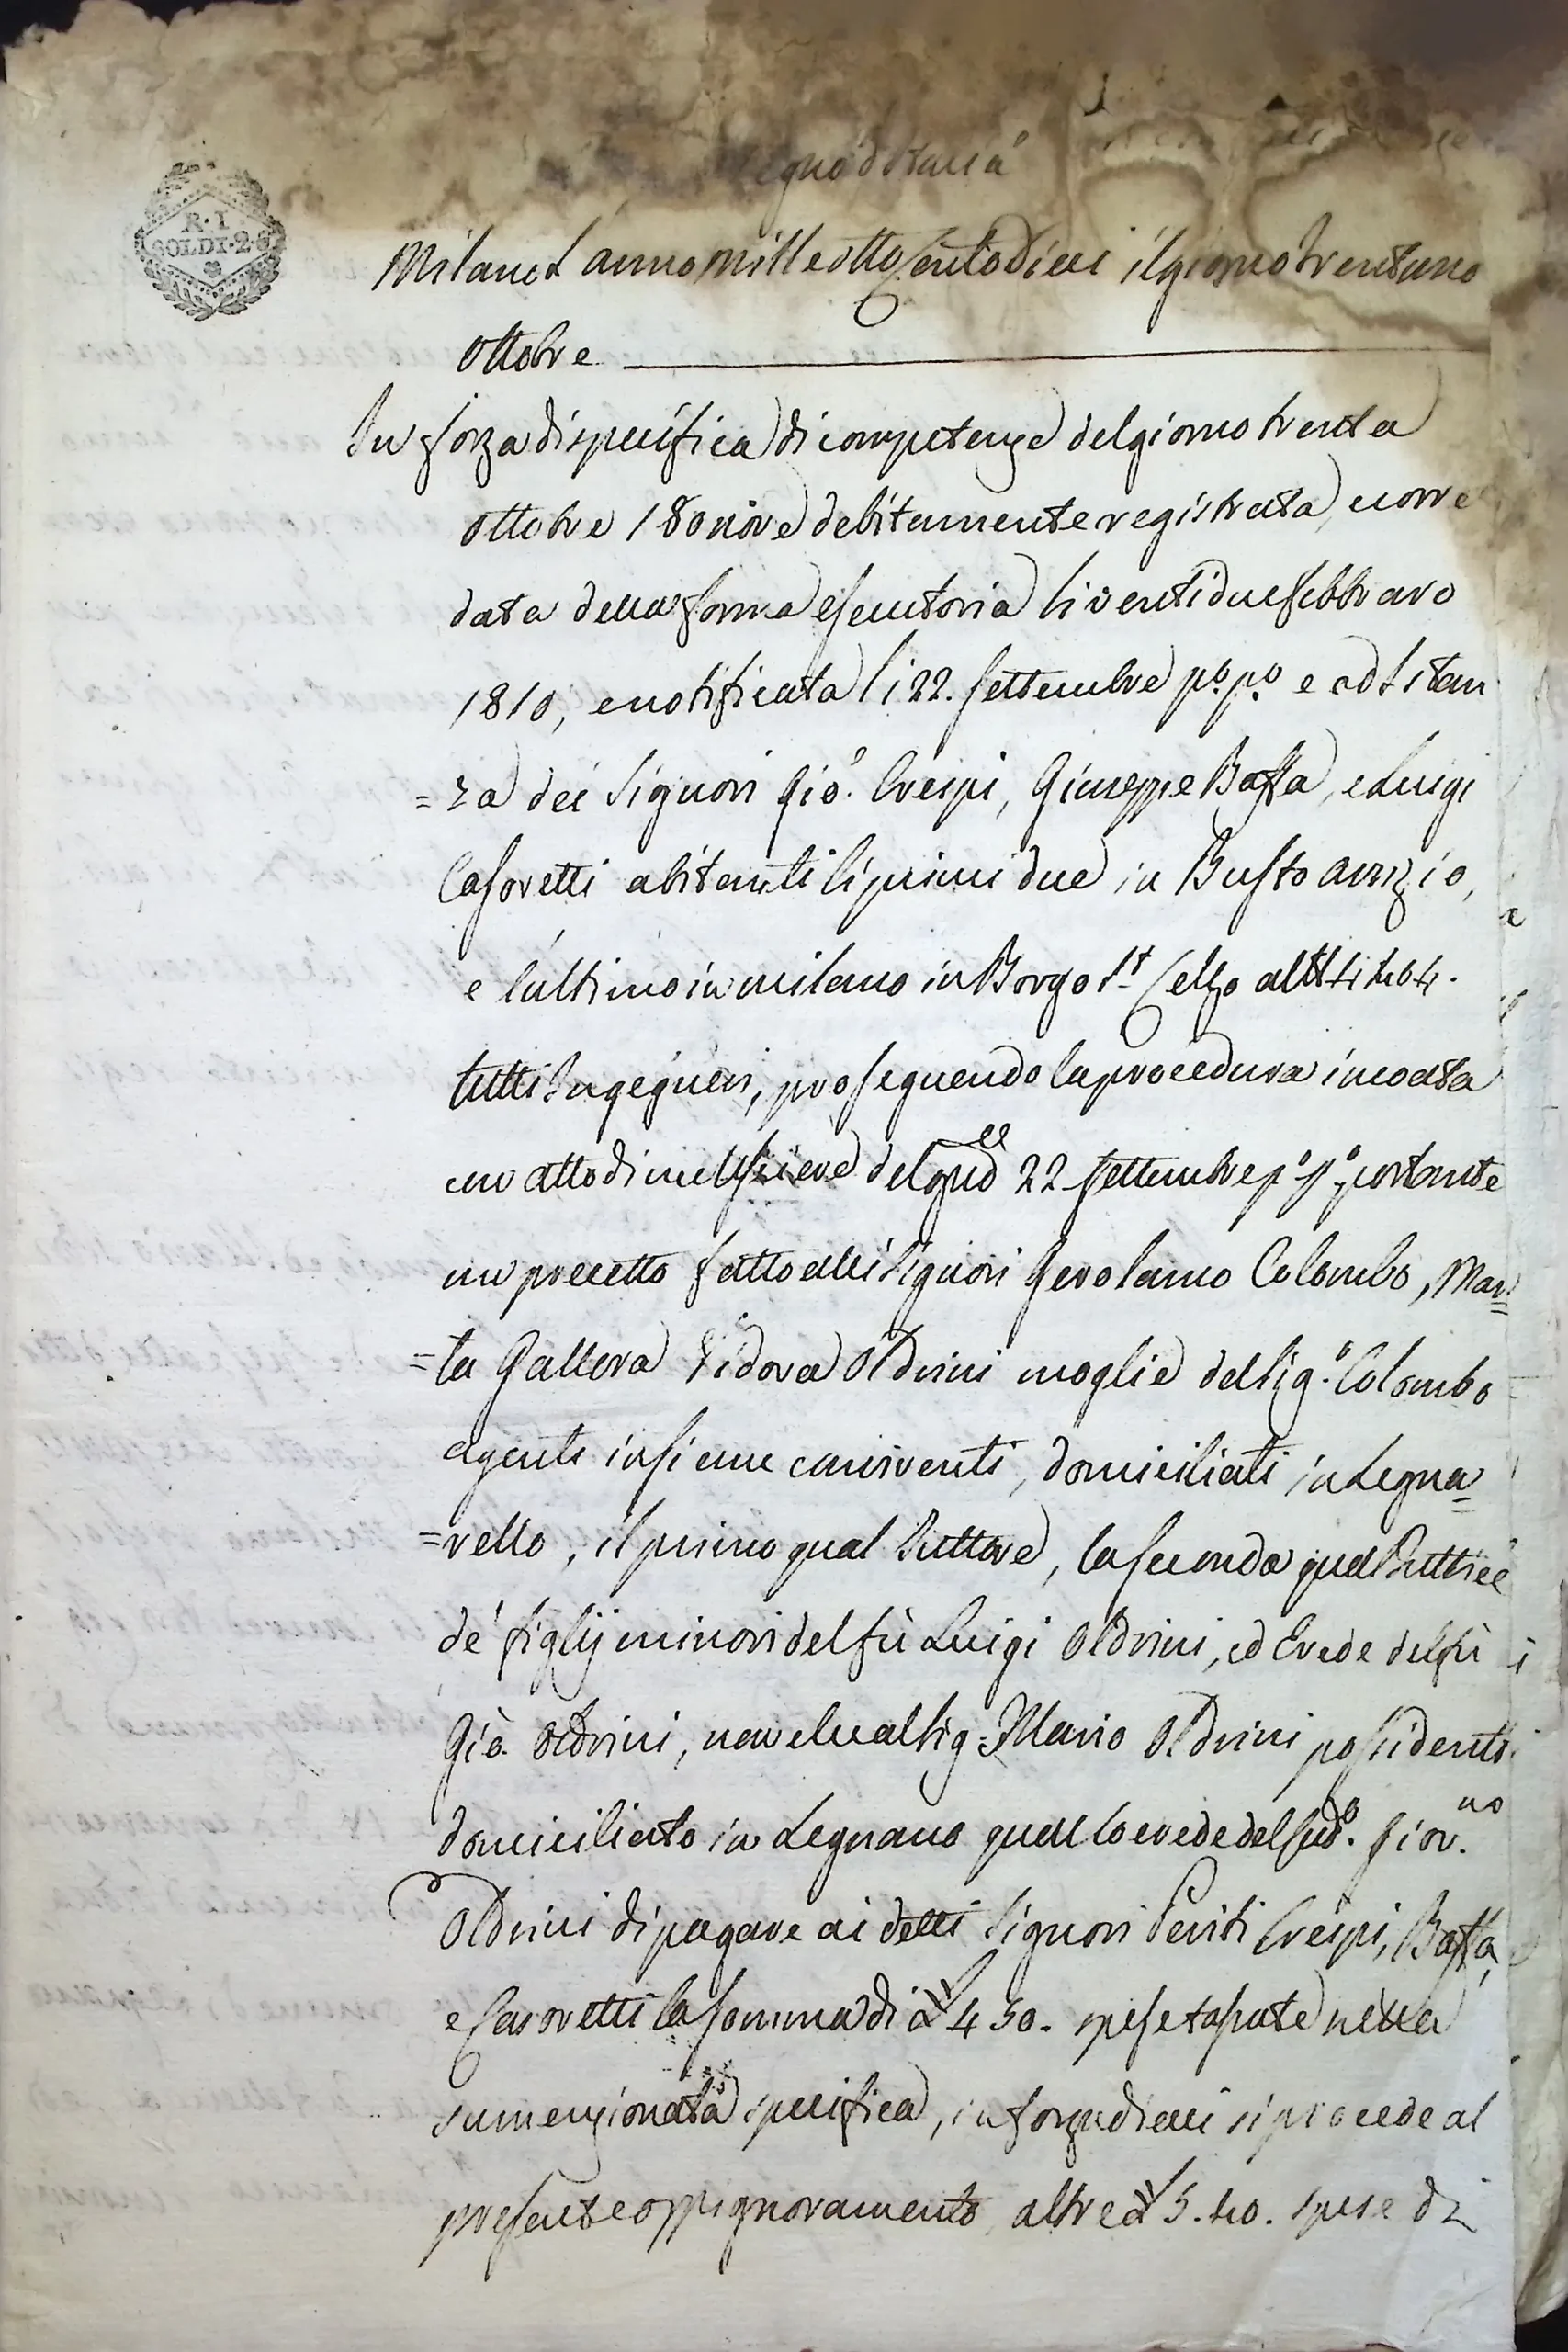 R. I.
SOLDI. 2.
Regno d'Italia
Milano L'anno mille otto cento dieci il giorno trentuno
Ottobre
In forza di specifica di competenze del giorno trenta
Ottobre 180nove debitamente registrata, e corre
data della forma esecutoria li ventidue febbraro
1810, e notificata li 22. settembre p.º p.º e ad istan
=za dei Signori Gio.' Crespi, Giuseppe Baffa, e Luigi
Casoretti abitanti li primi due in Busto arsizio,
e l'ultimo in milano in Borgo S.t Celso al
tutti Ingegneri, proseguendo la procedura incoata
con atto di mell'usciere del sud.º 22 settembre p.º p.º portante
un precetto fatto alli Signori Gerolamo Colombo, Mar=
=ta Gallera Vidova Oldrini moglie del Sig.r Colombo
agenti insieme conviventi, domiciliati in Legna=
=rello, il primo qual Tuttore, la seconda qual Tuttrice
de' figlij minori del fù Luigi Oldrini, ed Erede del fù
Giò. Oldrini, non che al Sig.r Mario Oldrini possidente
domiciliato in Legnano qual Coerede del sud.º Giov.no
Oldrini di pagare ai detti Signori Periti Crespi, Baffa,
e Casoretti la somma di £ 450. spese tassate nella
sumenzionata specifica, in forza di cui si procede al
presente oppignoramento, altre £ 5.40. spese di